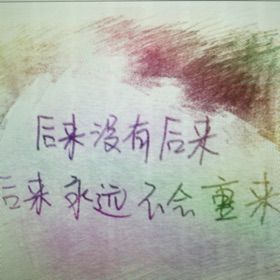 后来没有后来
后来永远不会重来